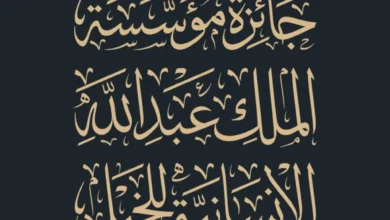 جَائِزَة مُؤَسَّسَة
المَلِك عَبْدِ اللَّهِ
الإِنْسَانِيَّة